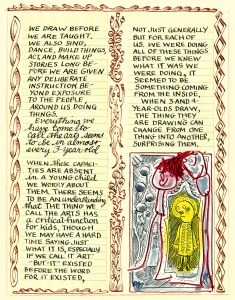 WE DRAW BEFORE
WE ARE TAUGHT.
WE ALSO SING,
DANCE, BUILD THINGS,
ACT, AND MAKE UP
STORIES LONG BE-
FORE WE ARE GIVEN
ANY DELIBERATE
INSTRUCTION BE-
YOND EXPOSURE
TO THE PEOPLE
AROUND US DOING
THINGS.
Everything we
have come to
call the arts seems
to be in almost
every 3-year old.
WHEN THESE CAPACI-
TIES ARE ABSENT
in A YOUNG CHILD
WE WORRY ABOUT
THEM. THERE SEEMS
TO BE AN understanding
that THE THING WE
CALL THE ARTS HAS
a critical function
FOR KIDS, THOUGH
WE MAY HAVE A HARD
TIME SAYING JUST
WHAT IT IS, ESPECIALLY
IF WE CALL IT ART
"BUT IT" EXISTED
BEFORE THE WORD
FOR IT EXISTED,
NOT JUST GENERALLY
BUT FOR EACH OF
US. WE WERE DOING
ALL OF THESE THINGS
BEFORE WE KNEW
WHAT IT WAS WE
WERE DOING, IT
SEEMED TO BE
SOMETHING COMING
FROM THE INSIDE.
WHEN 3 AND 4-
YEAR-OLDS DRAW,
THE THING THEY
ARE DRAWING CAN
CHANGE FROM ONE
THING INTO ANOTHER,
SURPRISING THEM.